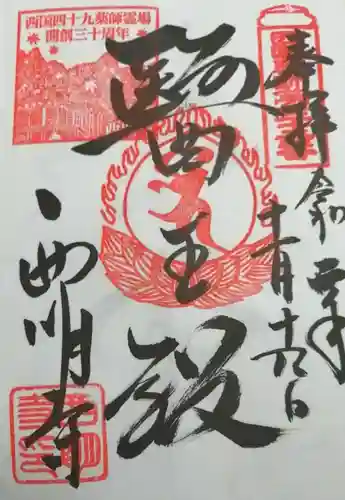 西国四十九薬師霊場
開創三十周年
奉拝
令和元年
十一月十九日
醫王殿
西明寺